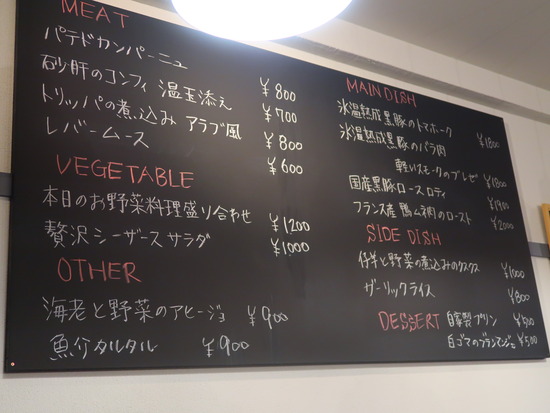 MEAT
パテドカンパーニュ ¥800
砂肝のコンフィ 温玉添え ¥700
トリッパの煮込み アラブ風 ¥800
レバームース ¥600
VEGETABLE
本日のお野菜料理盛り合わせ ¥1200
贅沢シーザースサラダ ¥1000
OTHER
海老と野菜のアヒージョ ¥900
魚介タルタル ¥900
MAIN DISH
氷温熟成黒豚のトマホーク ¥1800
氷温熟成黒豚のバラ肉
軽いスモークのブレゼ ¥1800
国産黒豚ロースロティ ¥1900
フランス産 鴨ムネ肉のロースト ¥2000
SIDE DISH
仔羊と野菜の煮込みのクスクス ¥1000
ガーリックライス ¥800
DESSERT 自家製プリン ¥500
白ゴマのブランマンジェ ¥500